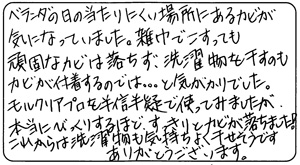 ベランダの日の当たりにくい場所にあるカビが
気になっていました。雑巾でこすっても
頑固なカビは落ちず、洗濯物を干すのも
カビが付着するのでは…と気がかりでした。
モルクリアプロを半信半疑で使ってみましたが、
本当にびっくりするほど、すっきりとカビが落ちました!
これからは洗濯物も気持ちよく干せそうです
ありがとうございます。